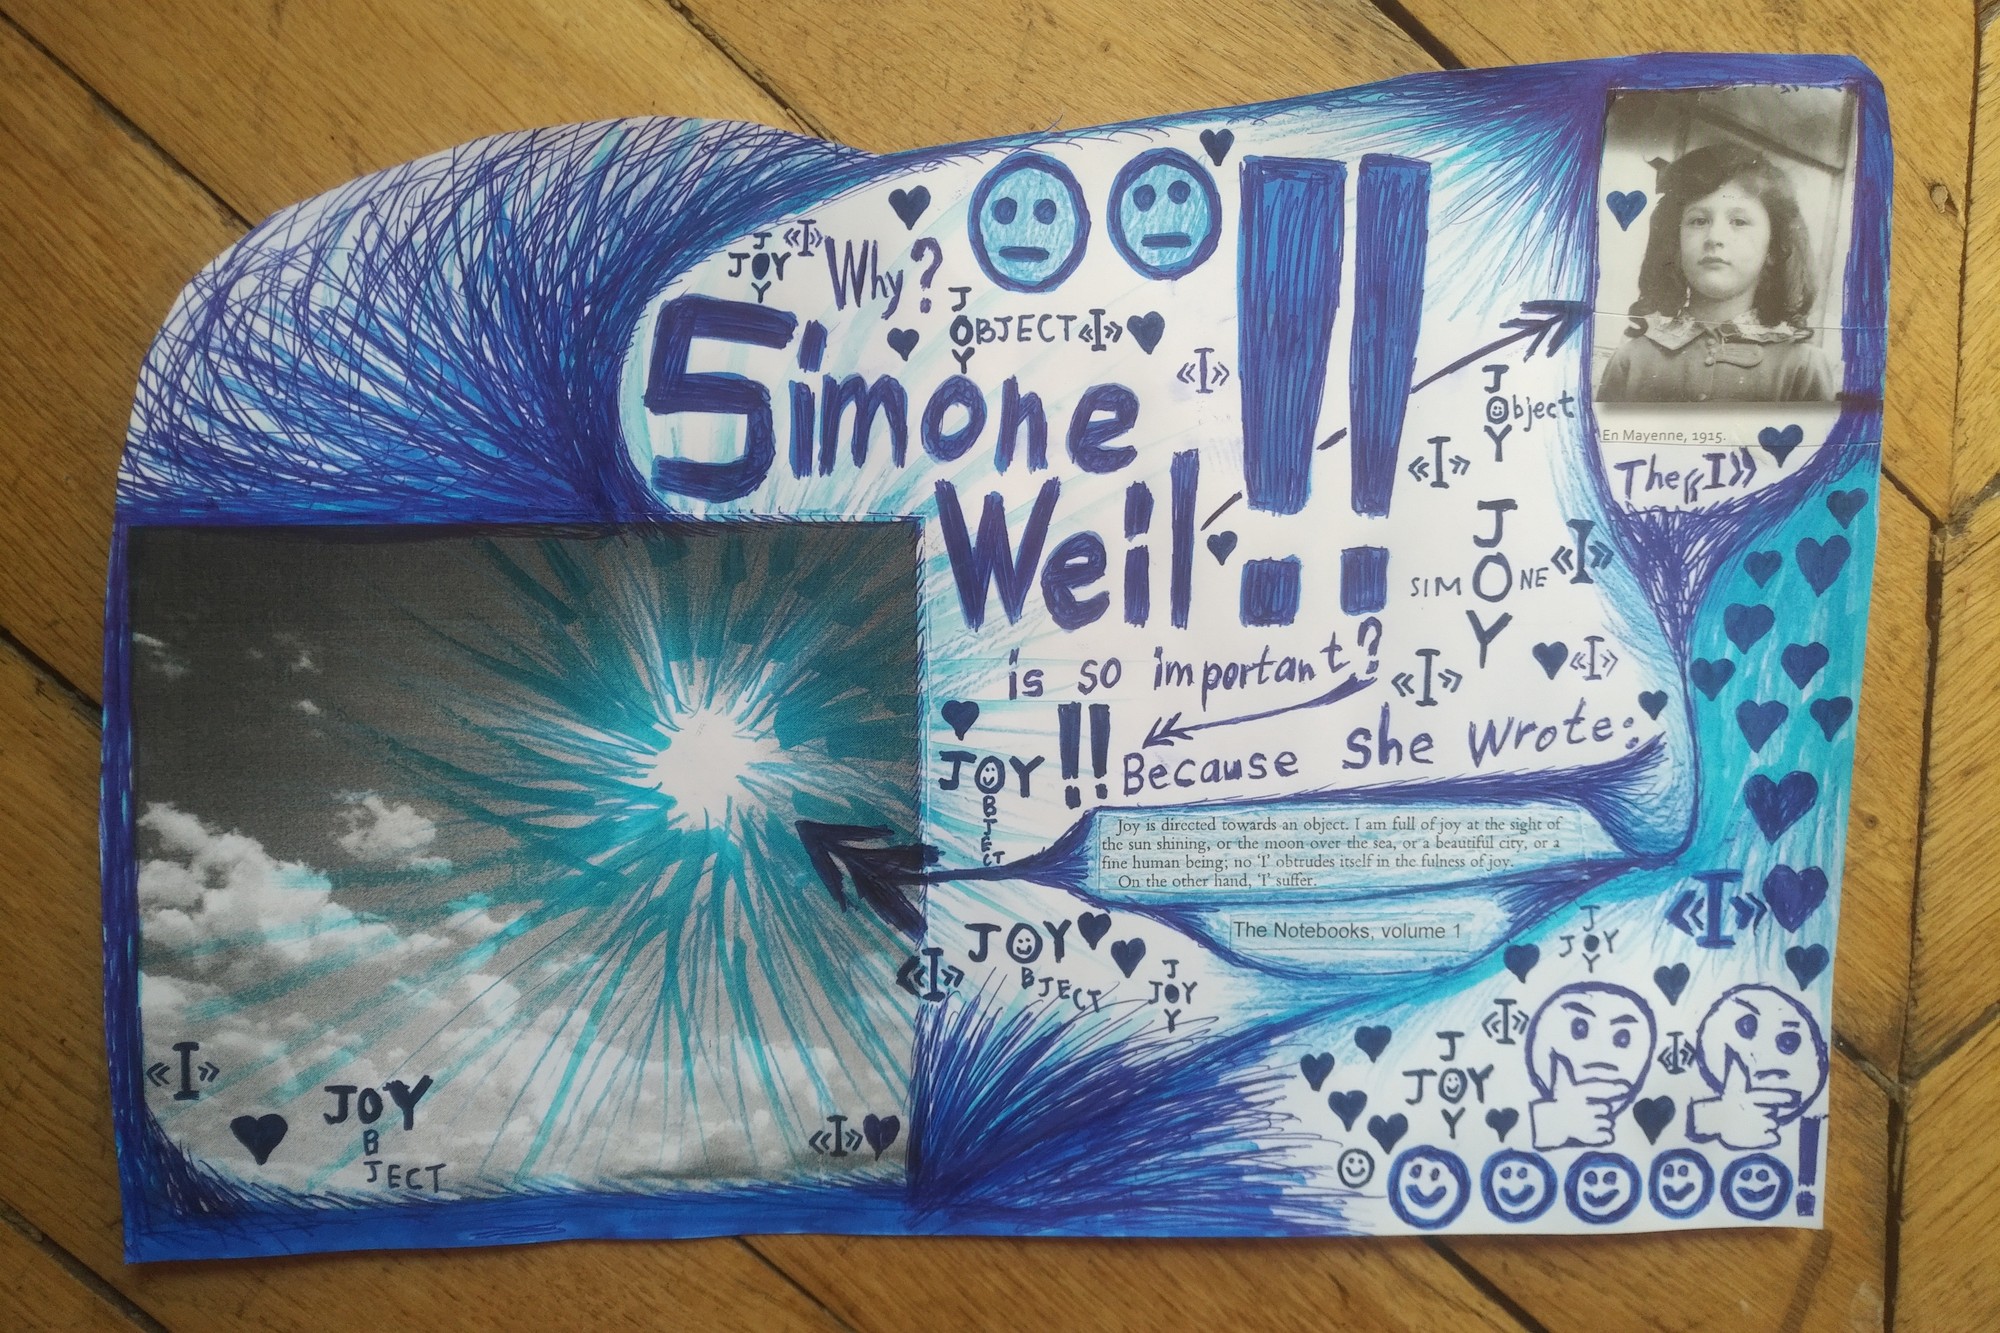 JOY
«I»
Why?
JOY
OBJECT «I»
Simone
«I»
Weil!!
En Mayenne, 1915.
The «I»
JOY
Object
«I»
JOY
SIMONE «I»
is so important?
«I»
«I»
JOY!!
OBJECT
Because she wrote:
Joy is directed towards an object. I am full of joy at the sight of
the sun shining, or the moon over the sea, or a beautiful city, or a
fine human being; no 'I' obtrudes itself in the fulness of joy.
On the other hand, 'I' suffer.
The Notebooks, volume 1
«I»
JOY
OBJECT
«I»
JOY
JOY
«I»
«I»
JOY
«I»
JOY
OBJECT
«I»
!